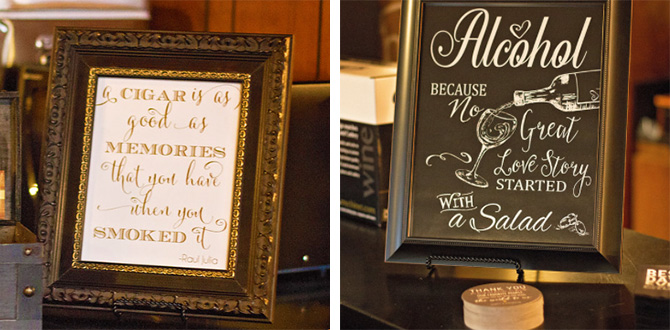 a CIGAR is as
good as
MEMORIES
that you have
when you
SMOKED it
-Raul Julia
Alcohol
BECAUSE
No
Great
Love Story
STARTED
WITH
a Salad
wine
THANK YOU